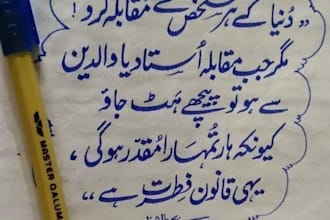 ,, دُنیا کے ہر شخص سے مقابلہ کرو !
مگر جب مقابلہ اُستاد یا والدین
سے ہو تو پیچھے ہٹ جاؤ
کیونکہ ہار تُمہارا مُقدّر ہوگی ،
یہی قانونِ فطرت ہے ،،
MASTER QALUM